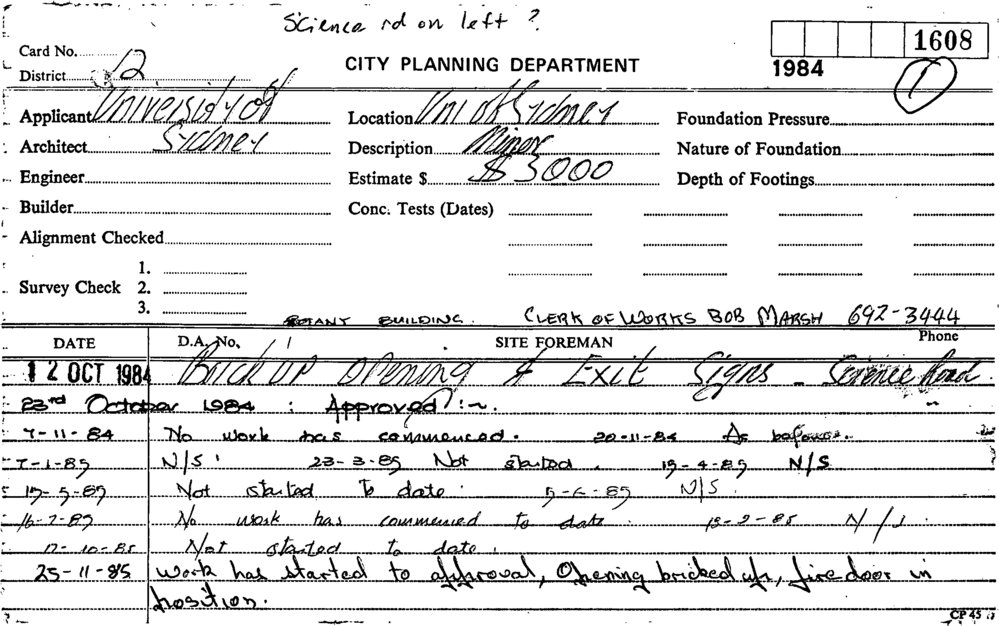 Science rd on left ?
Card No.
1608
District 12
CITY PLANNING DEPARTMENT
1984
1
Applicant University of
Location Uni of Sydney
Foundation Pressure
Architect Sydney
Description Minor
Nature of Foundation
Engineer
Estimate $ $3000
Depth of Footings
Builder
Conc. Tests (Dates)
Alignment Checked
1.
Survey Check 2.
3.
BOTANY BUILDING. CLERK OF WORKS BOB MARSH 692-3444
DATE D.A. No. SITE FOREMAN Phone
12 OCT 1984 Brick up opening & Exit Signs - Science Road.
23rd October 1984 : Approved :~.
7-11-84 No work has commenced. 20-11-84 As before.
7-1-85 N/S. 23-3-85 Not started. 19-4-85 N/S
-5-85 Not started to date. 5-6-85 N/S.
16-7-85 No work has commenced to date. -85 N/S.
-10-85 Not started to date.
25-11-85 Work has started to approval, Opening bricked up, fire door in
position.
CP 45